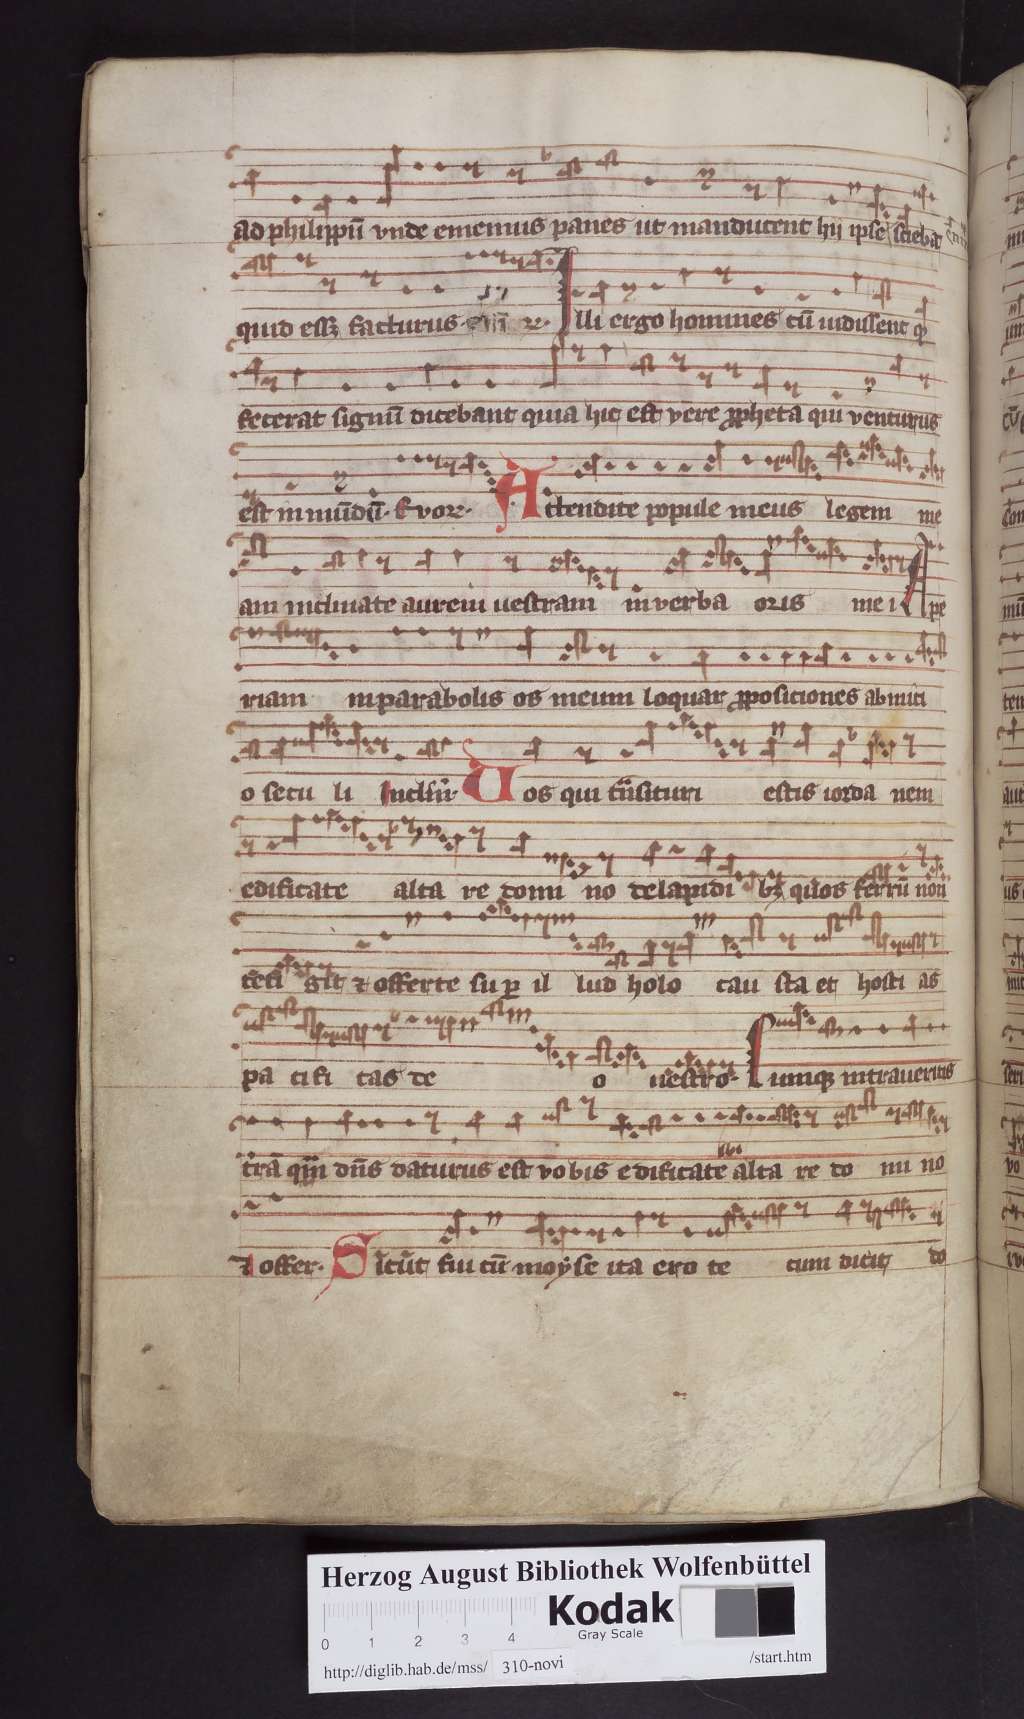 ad philippū vnde ememus panes ut manducent hii ipse sciebat
quid essꝫ facturus Illi ergo homines cū uidissent qꝫ
fecerat signū dicebant quia hic est vere ꝓpheta qui venturus
est in mūdū Attendite popule meus legem me
am inclinate aurem uestram in verba oris mei Ape
riam in parabolis os meum loquar ꝓposiciones ab inici
o secu li Inclin̄ Vos qui t̄nsituri estis iorda nem
edificate alta re domi no de lapidi bꝫ quos ferrū non
teti git ⁊ offerte suꝑ il lud holo cau sta et hosti as
pa cifi cas de o uestro Cumqꝫ intraueritis
t̄rā qm̄ dn̄s daturus est vobis edificate ibi alta re do mi no
⁊ offer Sicut fui cū moyse ita ero te cum dicit do
Herzog August Bibliothek Wolfenbüttel
0 1 2 3 4
Kodak
Gray Scale
http://diglib.hab.de/mss/ 310-novi /start.htm